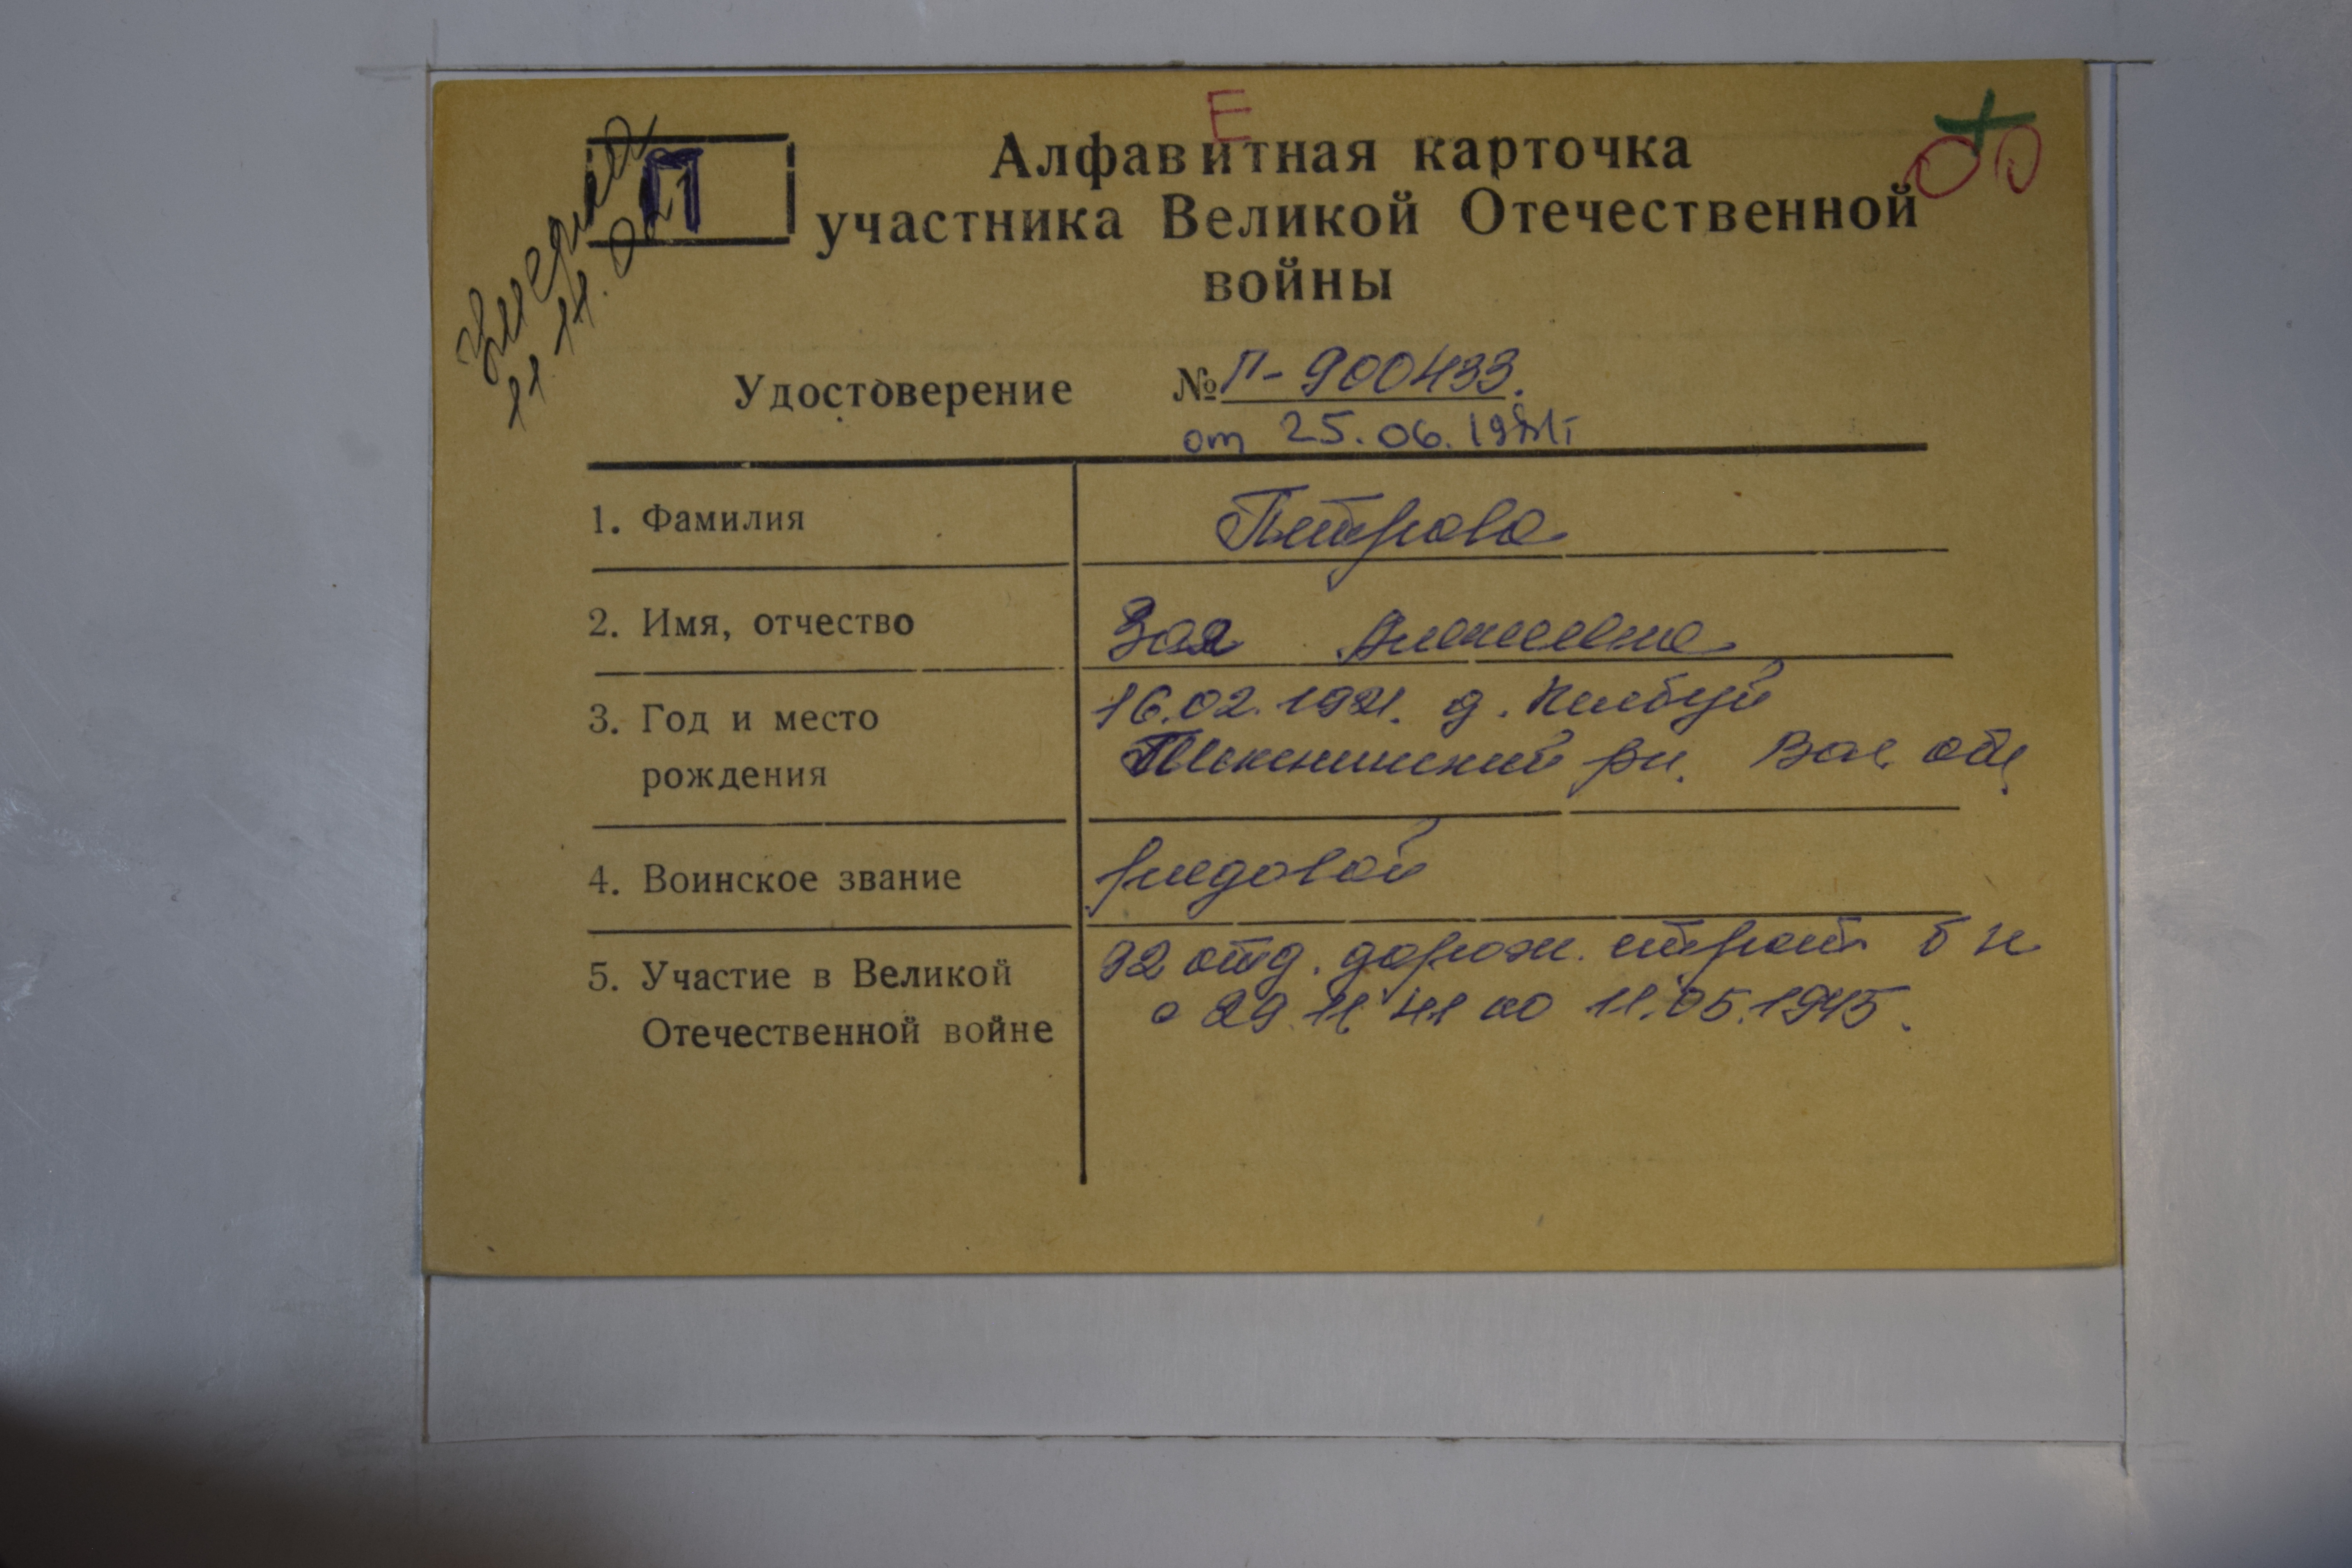 Е
Алфавитная карточка
П
участника Великой Отечественной
войны
умерла
11.11.02
Удостоверение № П-900433.
от 25.06.1981г
1. Фамилия Петрова
2. Имя, отчество Зоя Алексеевна
3. Год и место рождения
16.02.1921. д.
Шекснинский рн. Вол. обл.
4. Воинское звание рядовой
5. Участие в Великой
Отечественной войне
92 отд. дорож. строит б н
с 29.11.41 по 11.05.1945.